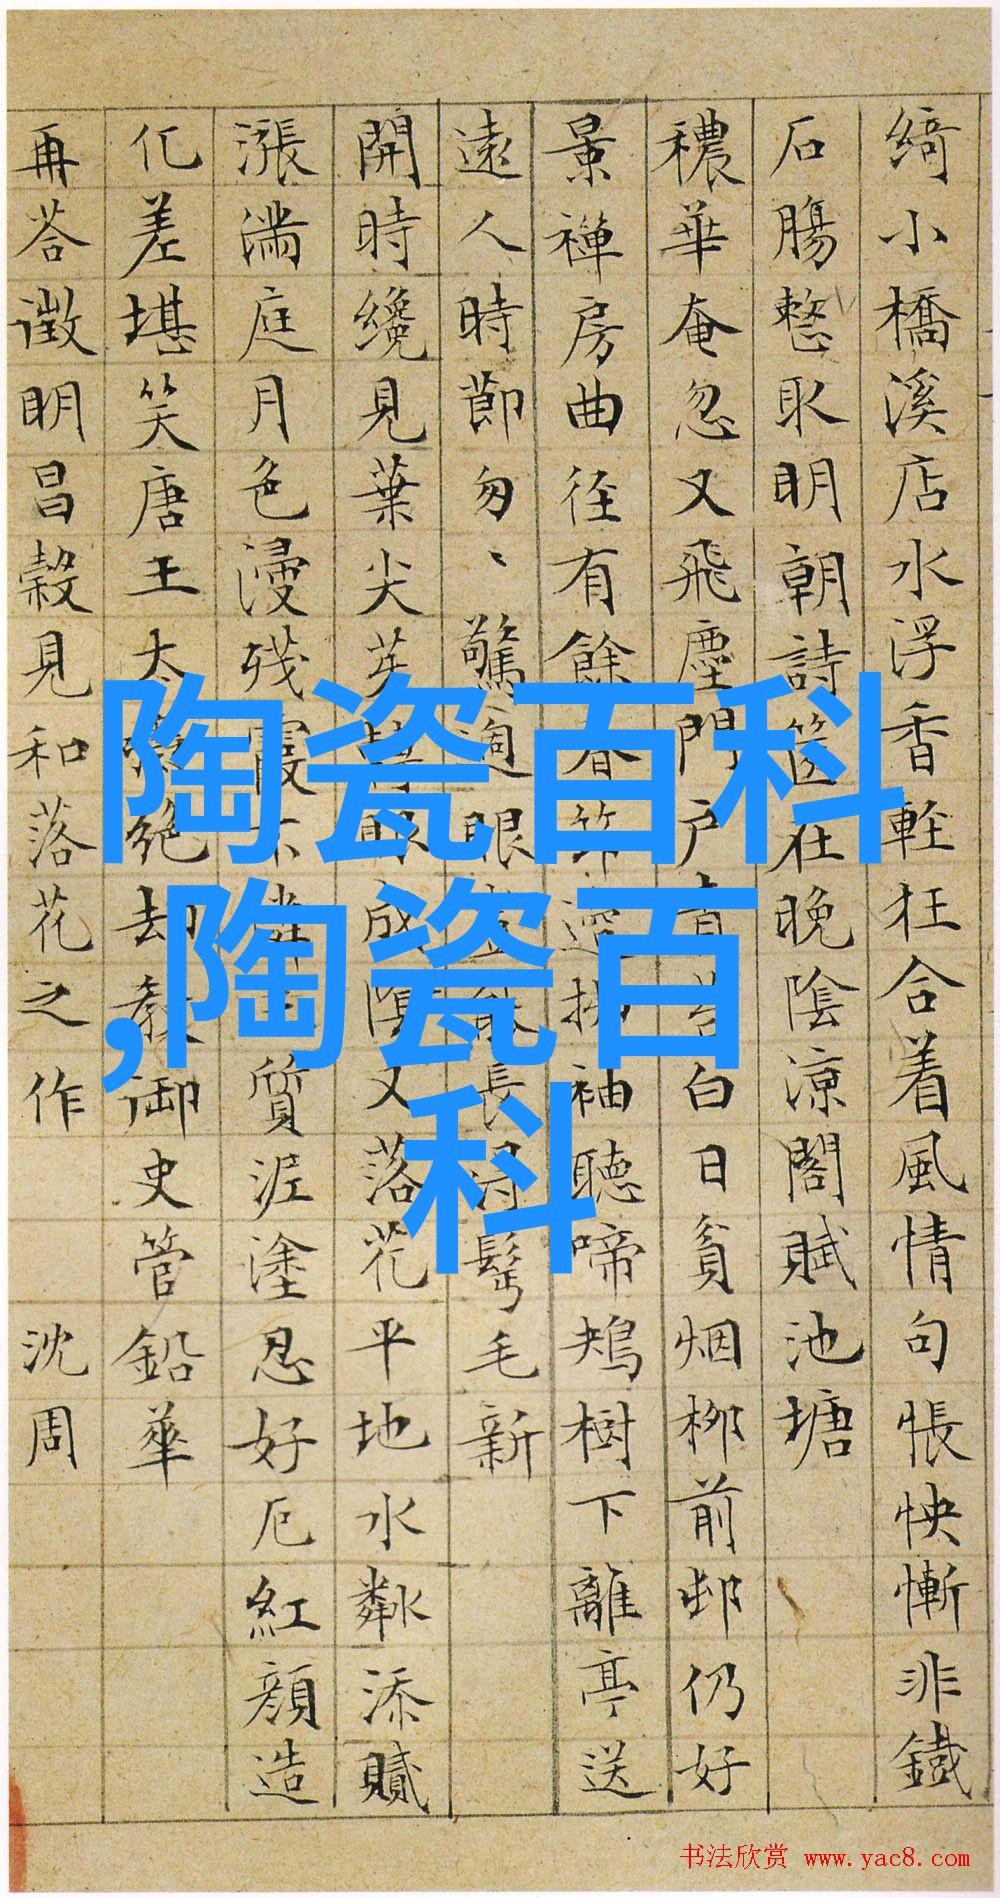 綺小橋溪店水浮香輕狂合着風情句悵怏慚非鐵
石腸愁取明朝詩酒在晚陰涼閣賦池塘
穠華奄忽又飛塵門戶白日貧烟柳前邨仍好
景禪房曲徑有餘春袖聽啼鴂樹下離亭送
遠人時節匆〻驚過眼長髩毛新
開時纔見葉尖又落花平地水粼添贓
漲滿庭月色漫殘霞質泥塗忍好厄紅顏造
化差堪笑唐王太絶却教御史管鉛華
再荅徵明昌穀見和落花之作 沈周
陶瓷百科
,陶瓷百
科
书法欣赏 www.yac8.com